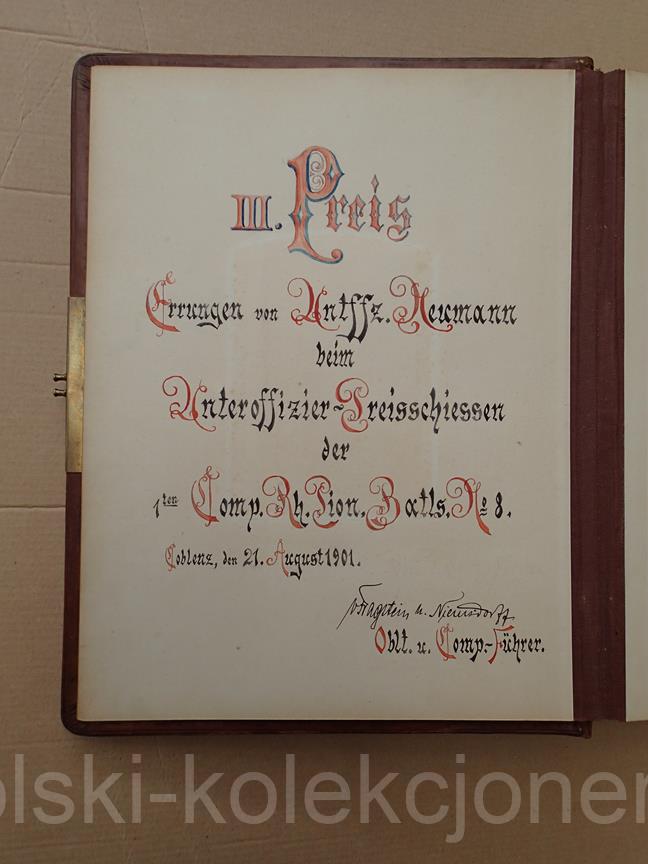 III. Preis
Errungen von Untffz. Neumann
beim
Unteroffizier-Preisschiessen
der
1ten Comp. Rh. Pion. Batls. No 8.
Coblenz, den 21. August 1901.
v Fragstein u. Niemsdorff
Oblt. u. Comp.-Führer.
olski-kolekcjoner